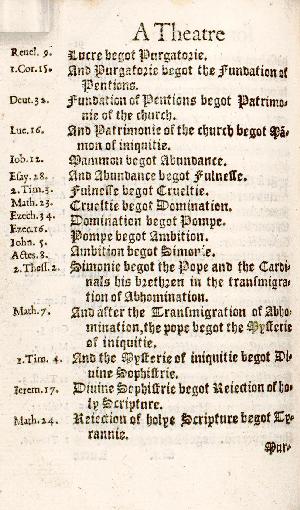 A Theatre
Reuel. 9. Lucre begot Purgatorie.
1.Cor.15. And Purgatorie begot the Fundation of
Pentions.
Deut.32. Fundation of Pentions begot Patrimo-
nie of the church.
Luc.16. And Patrimonie of the church begot Mã-
mon of iniquitie.
Iob.12. Mammon begot Abundance.
Esay.28. And Abundance begot Fulnesse.
2.Tim.3. Fulnesse begot Crueltie.
Math.23. Crueltie begot Domination.
Ezech.34. Domination begot Pompe.
Ezec.16. Pompe begot Ambition.
Iohn.5. Ambition begot Simonie.
Actes.8.
2.Thess.2. Simonie begot the Pope and the Cardi-
nals his brethren in the transmigra-
tion of Abhomination.
Math.7. And after the Transmigration of Abho-
mination, the pope begot the Mysterie
of iniquitie.
1.Tim.4. And the Mysterie of iniquitie begot Di-
uine Sophistrie.
Ierem.17. Diuine Sophistrie begot Reiection of ho-
ly Scripture.
Math.24. Reiection of holye Scripture begot Ty-
rannie.
Mur-